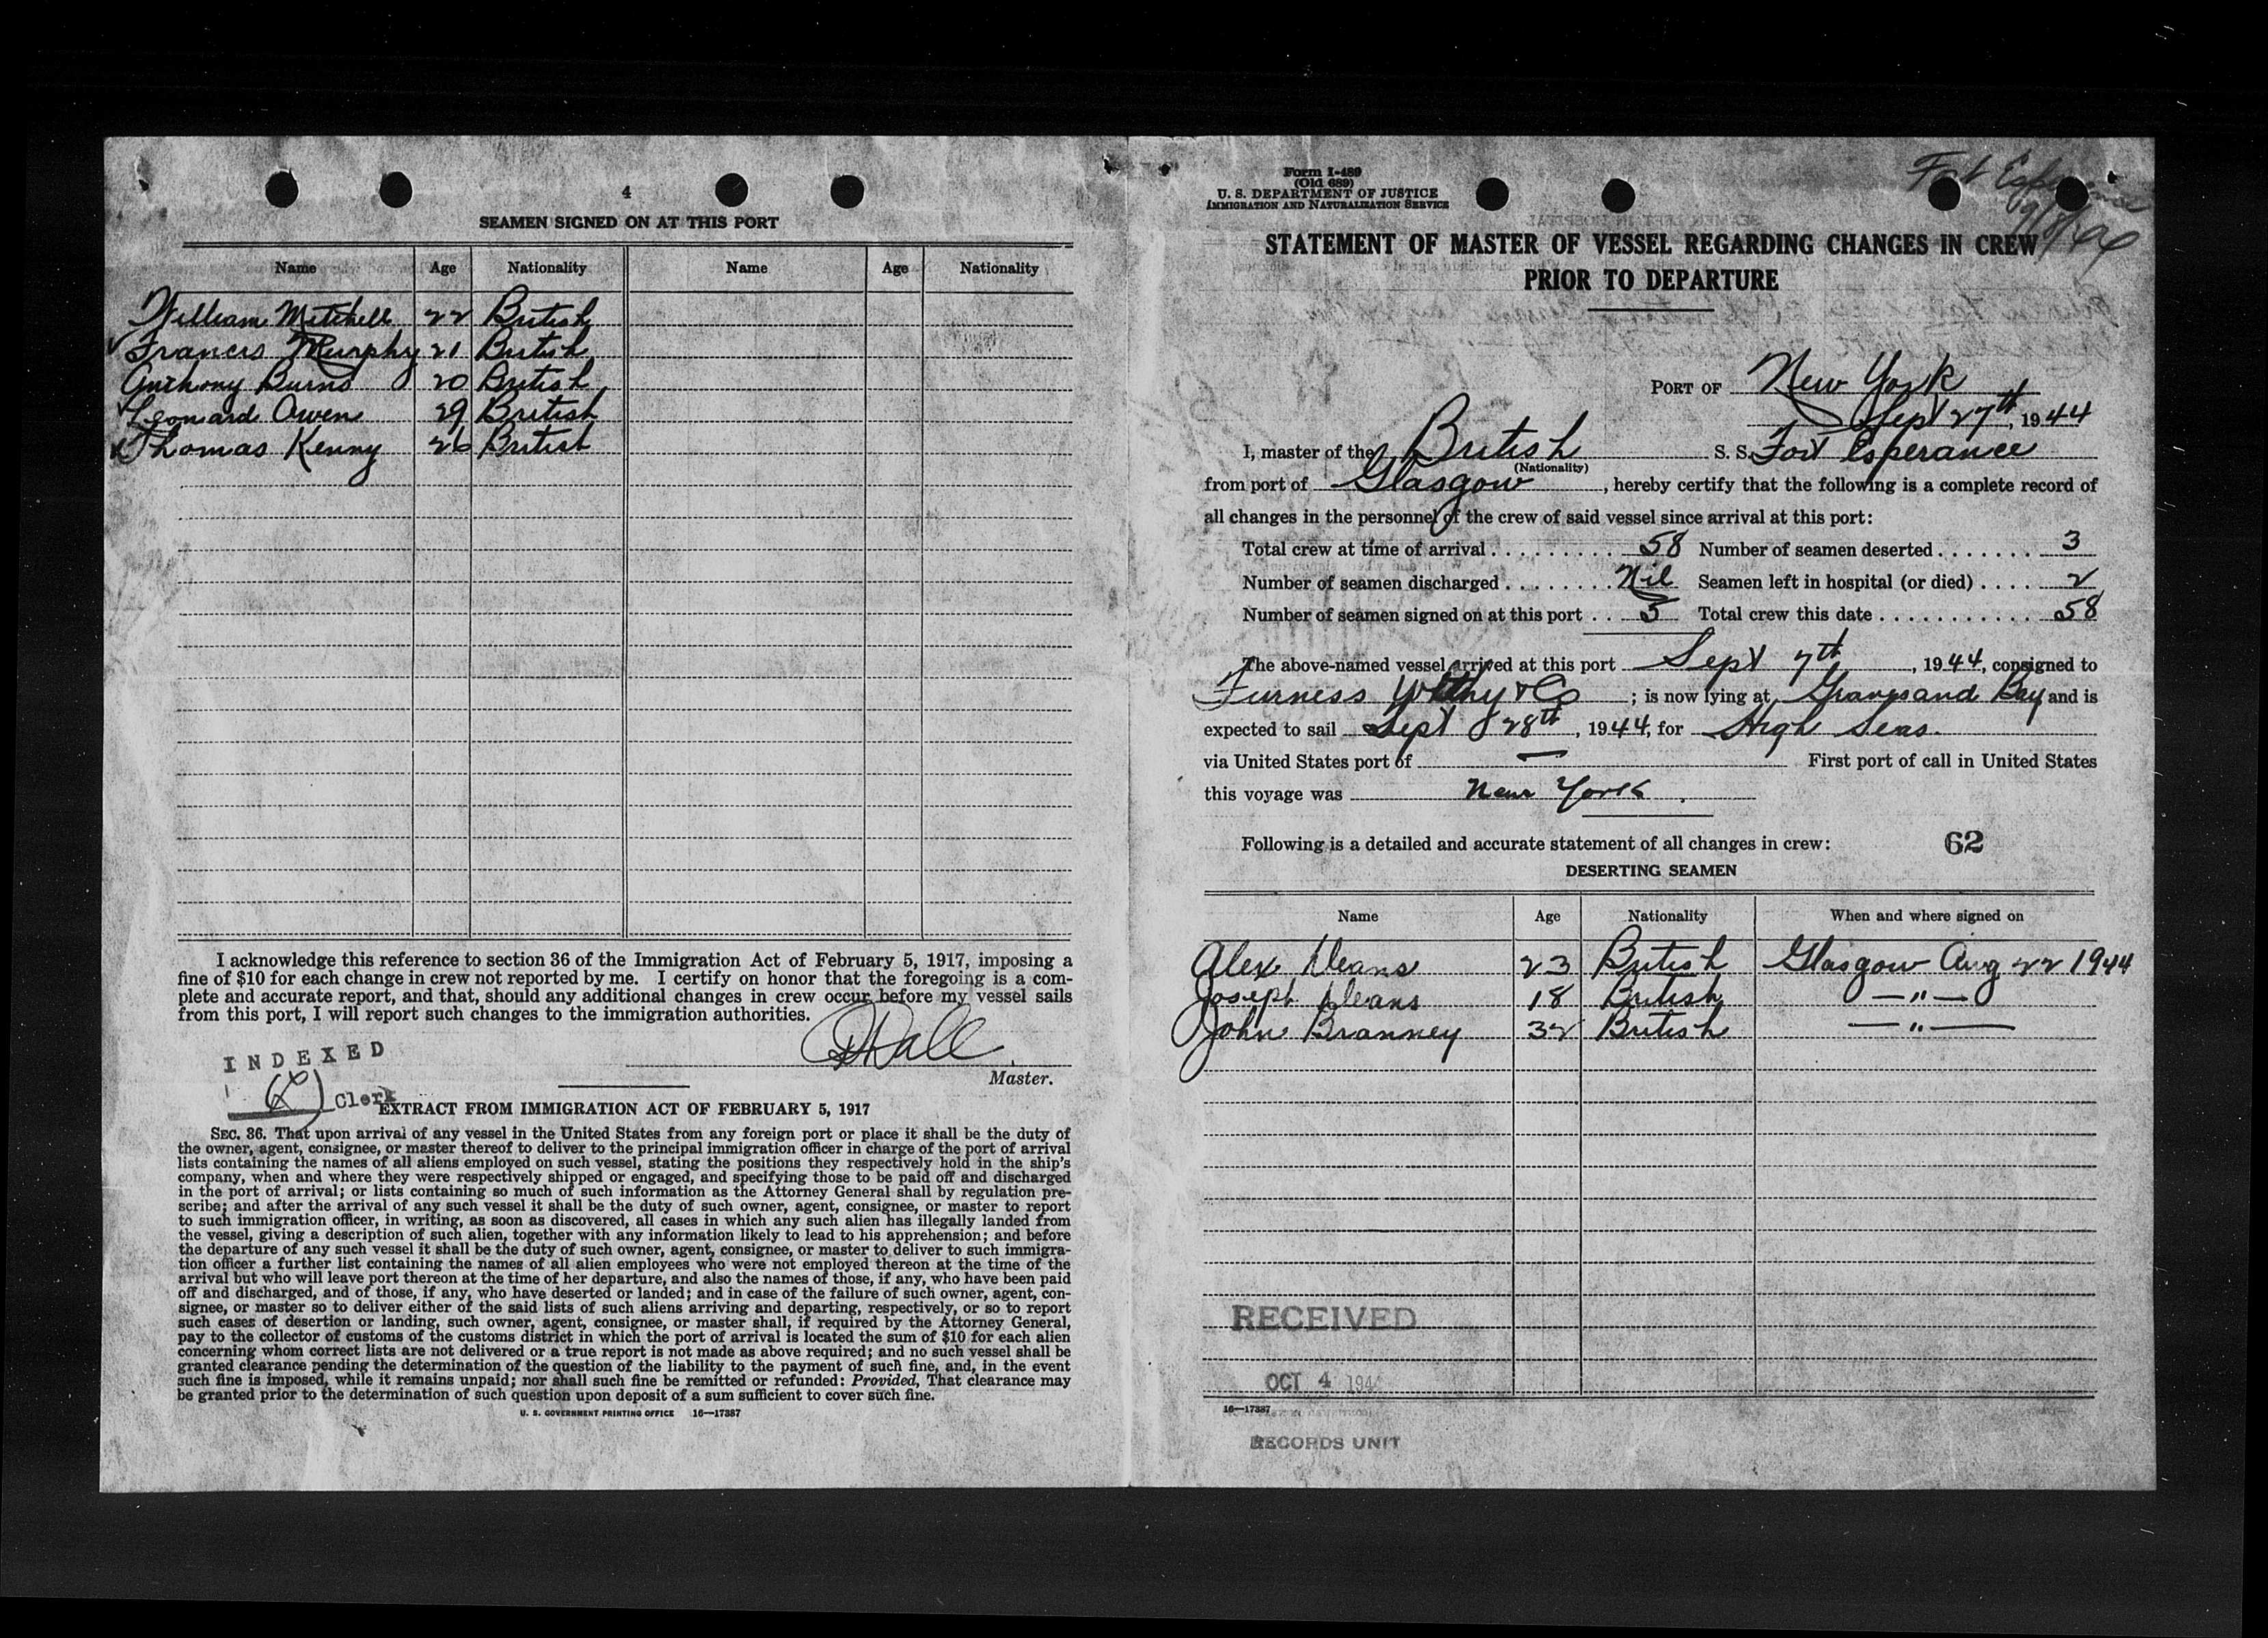 4
SEAMEN SIGNED ON AT THIS PORT
Name Age Nationality Name Age Nationality
William Mitchell 22 British
Francis Murphy 21 British
Anthony Burns 20 British
Leonard Owen 29 British
Thomas Kenny 26 British
I acknowledge this reference to section 36 of the Immigration Act of February 5, 1917, imposing a
fine of $10 for each change in crew not reported by me. I certify on honor that the foregoing is a com-
plete and accurate report, and that, should any additional changes in crew occur before my vessel sails
from this port, I will report such changes to the immigration authorities.
Master.
INDEXED
Clerk
EXTRACT FROM IMMIGRATION ACT OF FEBRUARY 5, 1917
SEC. 36. That upon arrival of any vessel in the United States from any foreign port or place it shall be the duty of
the owner, agent, consignee, or master thereof to deliver to the principal immigration officer in charge of the port of arrival
lists containing the names of all aliens employed on such vessel, stating the positions they respectively hold in the ship's
company, when and where they were respectively shipped or engaged, and specifying those to be paid off and discharged
in the port of arrival; or lists containing so much of such information as the Attorney General shall by regulation pre-
scribe; and after the arrival of any such vessel it shall be the duty of such owner, agent, consignee, or master to report
to such immigration officer, in writing, as soon as discovered, all cases in which any such alien has illegally landed from
the vessel, giving a description of such alien, together with any information likely to lead to his apprehension; and before
the departure of any such vessel it shall be the duty of such owner, agent, consignee, or master to deliver to such immigra-
tion officer a further list containing the names of all alien employees who were not employed thereon at the time of the
arrival but who will leave port thereon at the time of her departure, and also the names of those, if any, who have been paid
off and discharged, and of those, if any, who have deserted or landed; and in case of the failure of such owner, agent, con-
signee, or master so to deliver either of the said lists of such aliens arriving and departing, respectively, or so to report
such cases of desertion or landing, such owner, agent, consignee, or master shall, if required by the Attorney General,
pay to the collector of customs of the customs district in which the port of arrival is located the sum of $10 for each alien
concerning whom correct lists are not delivered or a true report is not made as above required; and no such vessel shall be
granted clearance pending the determination of the question of the liability to the payment of such fine, and, in the event
such fine is imposed, while it remains unpaid; nor shall such fine be remitted or refunded: Provided, That clearance may
be granted prior to the determination of such question upon deposit of a sum sufficient to cover such fine.
U. S. GOVERNMENT PRINTING OFFICE 16—17387
Form I-489
(Old 689)
U. S. DEPARTMENT OF JUSTICE
IMMIGRATION AND NATURALIZATION SERVICE
STATEMENT OF MASTER OF VESSEL REGARDING CHANGES IN CREW
PRIOR TO DEPARTURE
PORT OF New York
Sept 27th, 1944
I, master of the British S. S. Fort Esperance
(Nationality)
from port of Glasgow, hereby certify that the following is a complete record of
all changes in the personnel of the crew of said vessel since arrival at this port:
Total crew at time of arrival 58 Number of seamen deserted 3
Number of seamen discharged Nil Seamen left in hospital (or died) 2
Number of seamen signed on at this port 5 Total crew this date 58
The above-named vessel arrived at this port Sept 7th, 1944, consigned to
Furness Withy & Co; is now lying at Gravesand Bay and is
expected to sail Sept 28th, 1944, for High Seas.
via United States port of — First port of call in United States
this voyage was New York.
Following is a detailed and accurate statement of all changes in crew: 62
DESERTING SEAMEN
Name Age Nationality When and where signed on
Alex Deans 23 British Glasgow Aug 22 1944
Joseph Deans 18 British —"—
John Branney 32 British —"—
RECEIVED
OCT 4 194
16—17387
RECORDS UNIT